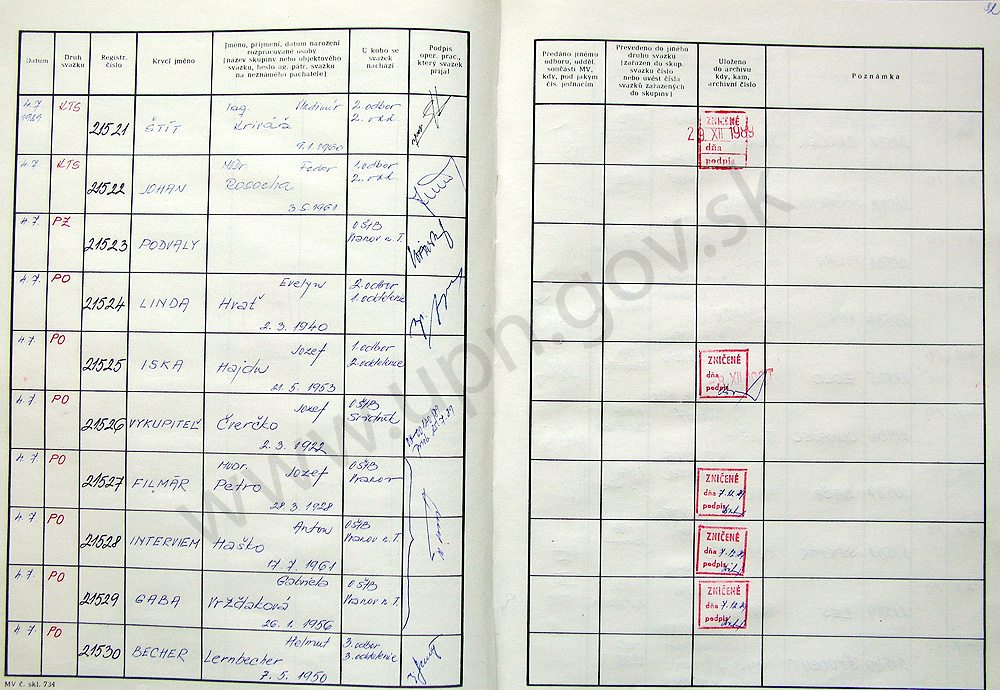 32
Datum
Druh svazku
Registr. číslo
Krycí jméno
Jméno, příjmení, datum narození rozpracované osoby
(název skupiny nebo objektového svazku, heslo ag. pátr. svazku na neznámého pachatele)
U koho se svazek nachází
Podpis oper. prac., který svazek přijal
Předáno jinému odboru, odděl. součásti MV, kdy, pod jakým čís. jednacím
Převedeno do jiného druhu svazku (zařazen do skup. svazku číslo nebo uvést čísla svazků zařazených do skupiny)
Uloženo do archivu kdy, kam, archivní číslo
Poznámka
4.7. 1989 KTS 21521 ŠTÍT Ing. Vladimír
Krivák 2. odbor
9.1.1960 2. odd.
ZNIČENÉ
29 XII 1989
dňa
podpis
4.7. KTS 21522 JOHAN MUDr. Fedor 1. odbor
Rosocha 2. odd.
3.5.1961
4.7. PZ 21523 PODVALY OŠtB
Vranov n. T.
4.7. PO 21524 LINDA Evelyn 2. odbor
Hrať 1. oddelenie
2. 3. 1940
4.7. PO 21525 ISKA Jozef 1. odbor
Hajdu 2. oddelenie
21. 5. 1953
ZNIČENÉ
dňa
podpis
4.7. PO 21526 VYKUPITEĽ Jozef OŠtB
Čverčko Svidník
2. 3. 1922
4.7. PO 21527 FILMÁR MUDr. Jozef OŠtB
Petro Vranov
28. 3. 1928
ZNIČENÉ
dňa 7.12.89
podpis
4.7. PO 21528 INTERVIEM Anton OŠtB
Haško Vranov n. T.
17. 7. 1961
ZNIČENÉ
dňa 7.12.89
podpis
4.7. PO 21529 GABA Gabriela OŠtB
Vržďaková Vranov n. T.
26. 1. 1956
ZNIČENÉ
dňa 7.12.89
podpis
4.7. PO 21530 BECHER Helmut 3. odbor
Lernbecher 3. oddelenie
7. 5. 1950
MV č. skl. 734
www.upn.gov.sk